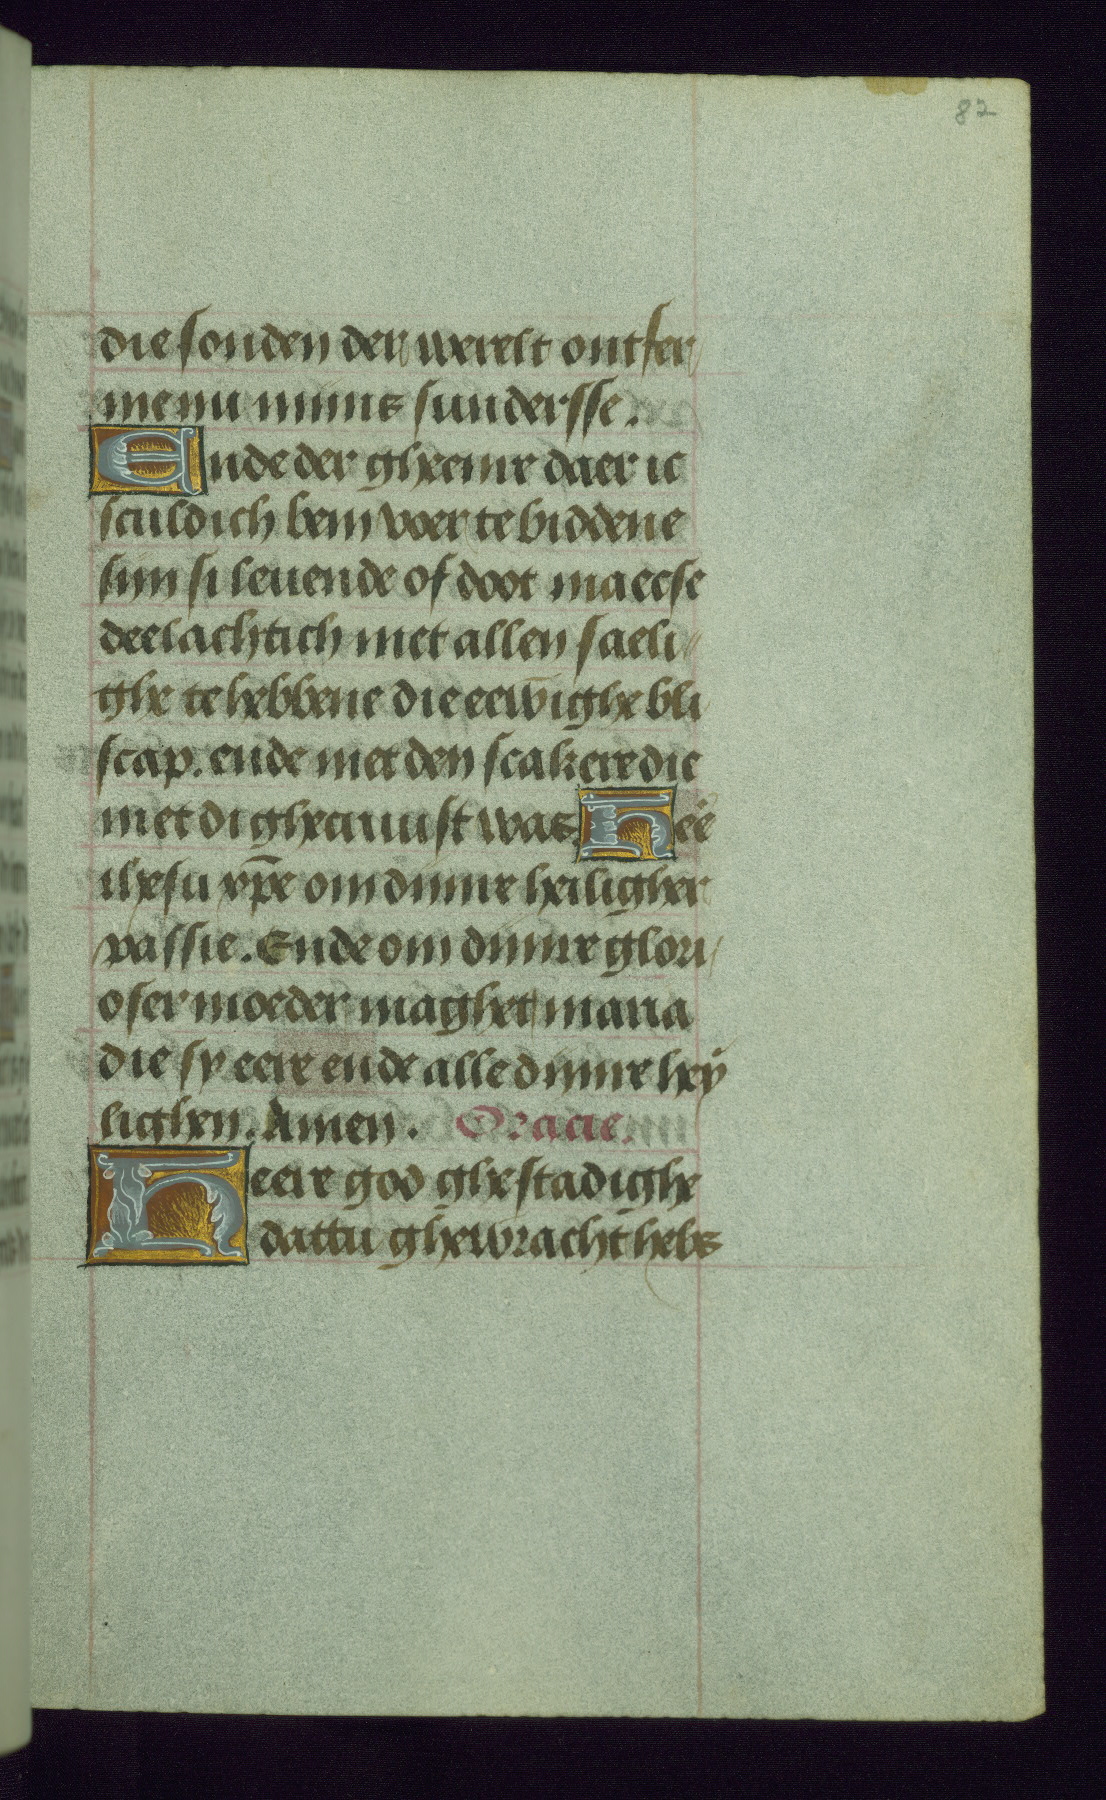 82
die sonden der werelt ontfer
me nu mijns sundersse.
Ende der gheenre daer ic
sculdich bem voer te biddene
sijn si leuende of doot maecse
deelachtich met allen saeli
ghe te hebbene die eewighe bli
scap. ende met den scakere die
met di ghecruust was. Heē
ihesu xp̄e om dijnre heiligher
passie. Ende om dijnre glori
oser moeder maghet maria
die sy eere ende alle dijnre hey
lighen. Amen. Oracie.
Heere god ghestadighe
dattu ghewracht hebs